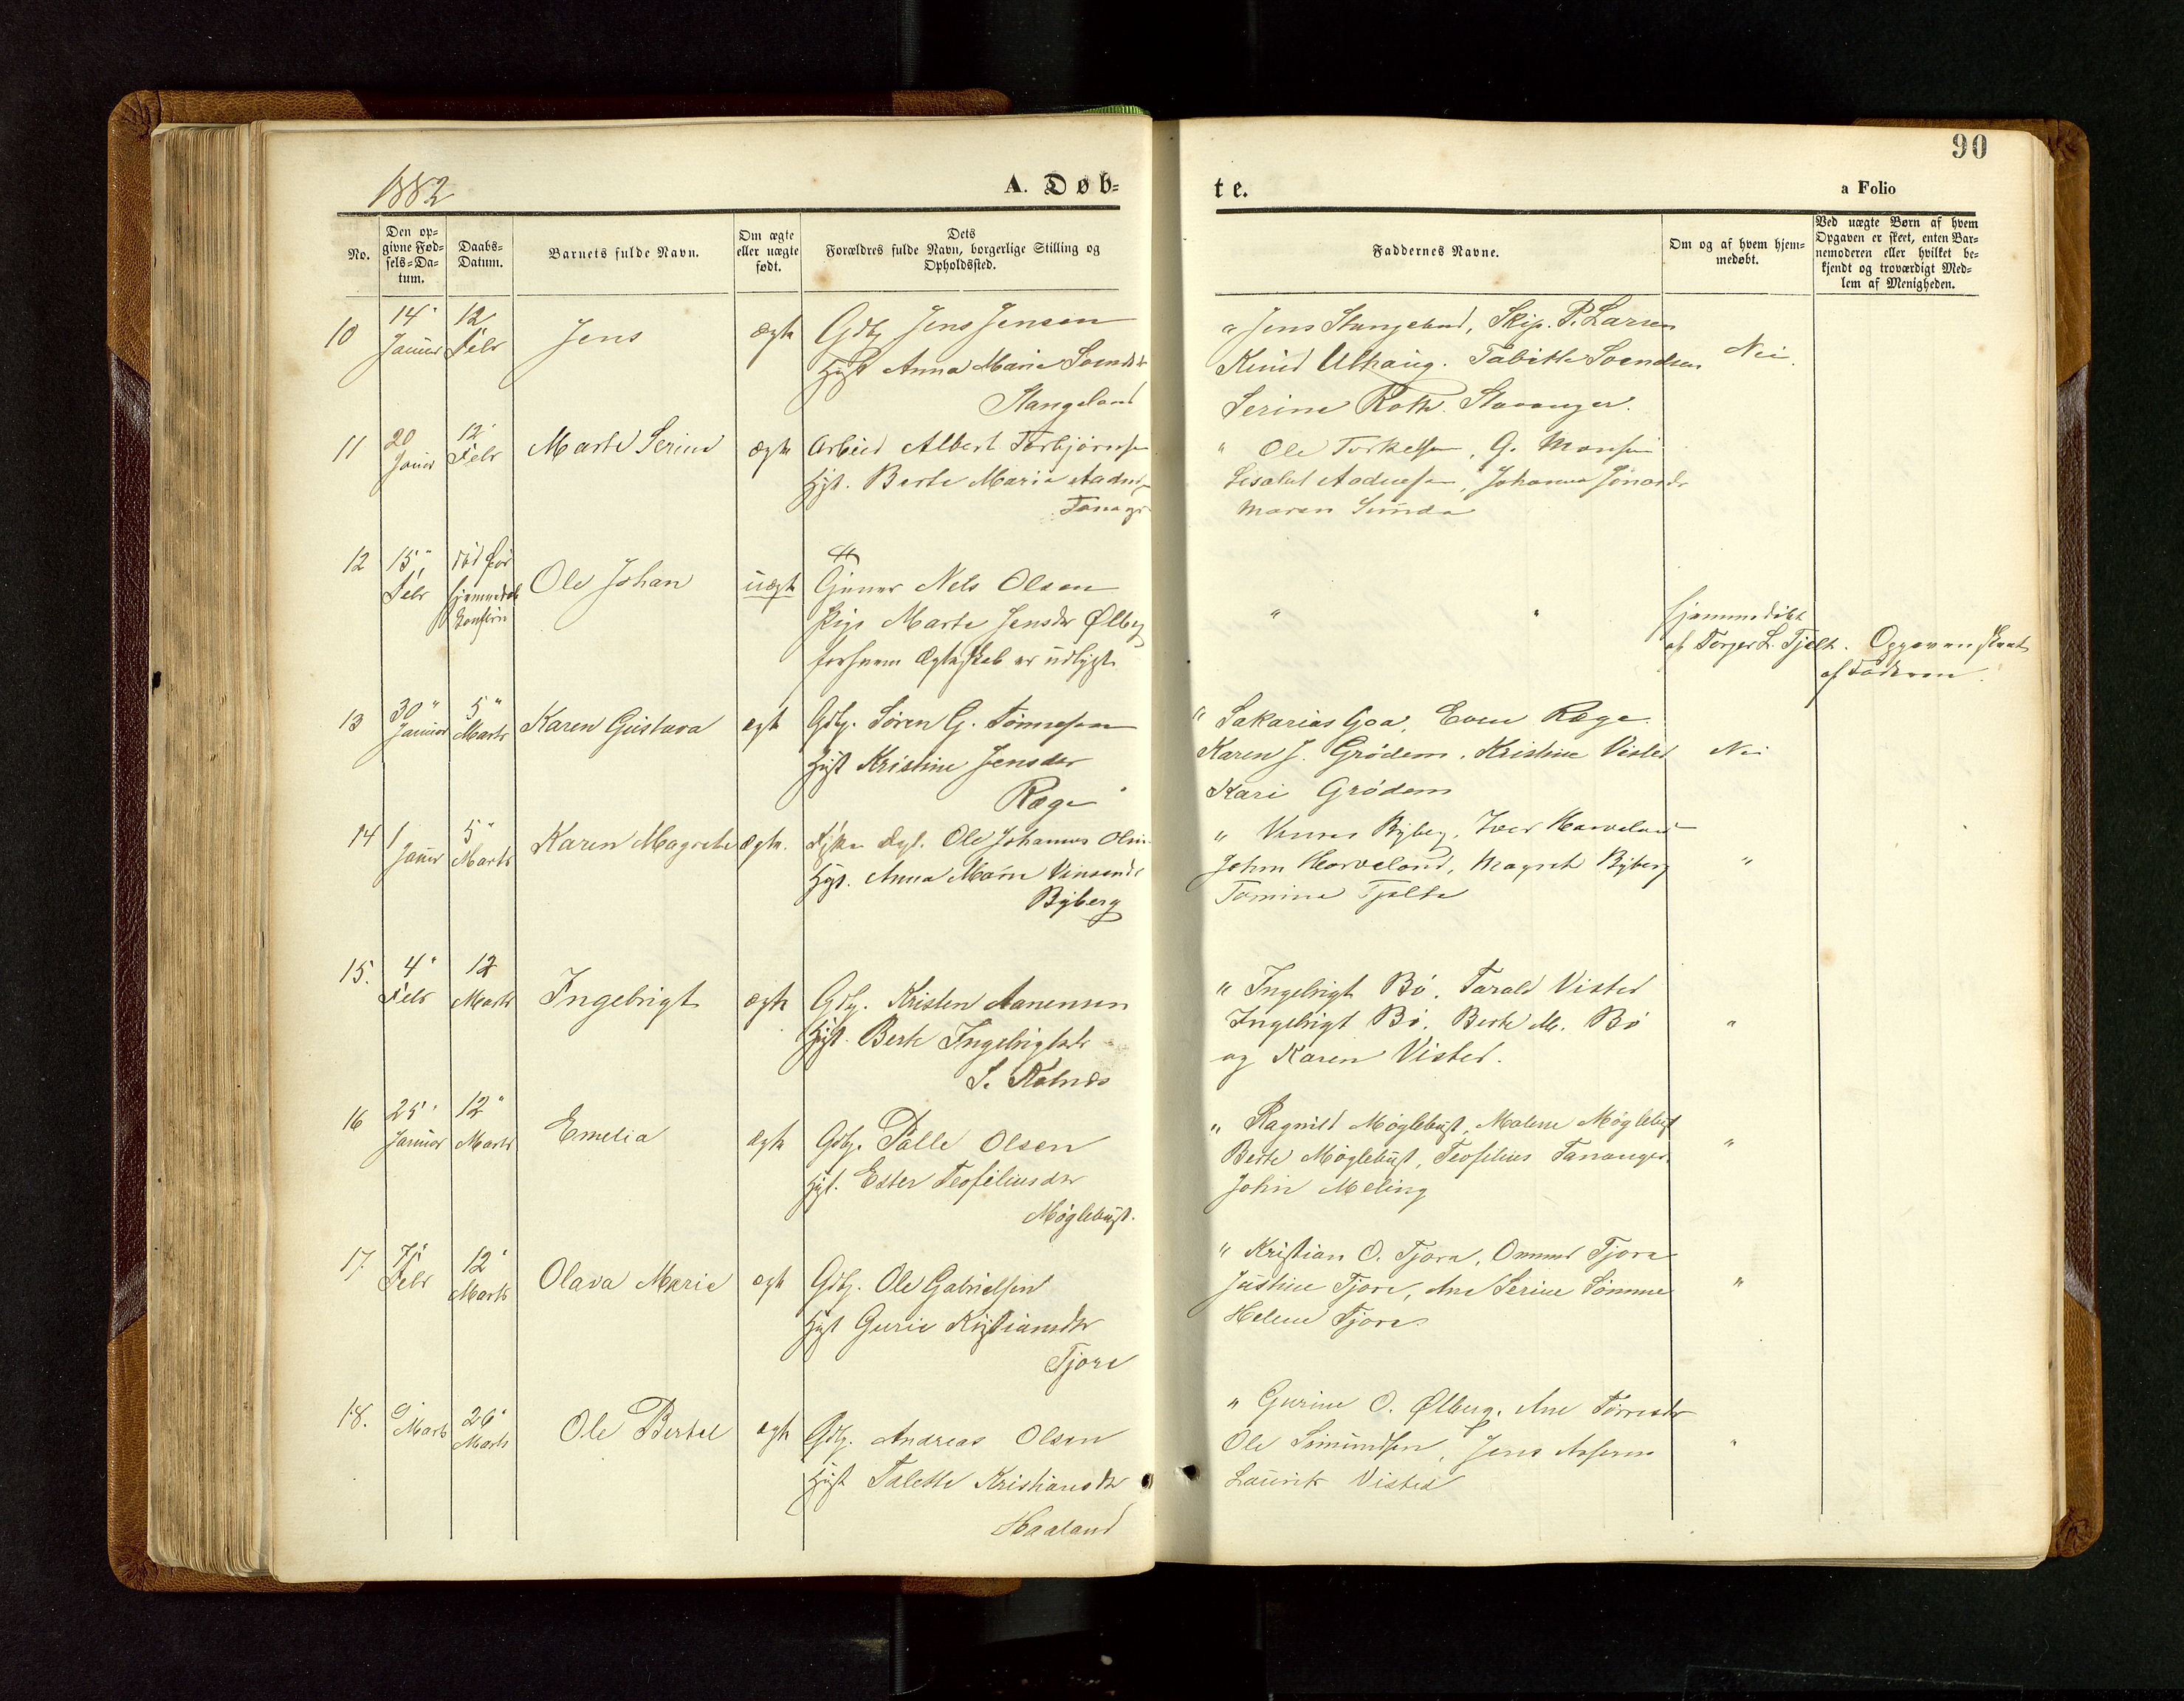 90
1882
A. Døb=
te.
a Folio
No.
Den op=
givne Fød=
sels=Da=
tum.
Daabs=
Datum.
Barnets fulde Navn.
Om ægte
eller uægte
født.
Dets
Forældres fulde Navn, borgerlige Stilling og
Opholdssted.
Faddernes Navne.
Om og af hvem hjem=
medøbt.
Ved uægte Børn af hvem
Opgaven er skeet, enten Bar=
nemoderen eller hvilket be=
kjendt og troværdigt Med=
lem af Menigheden.
10
14"
Januar
12
Febr
Jens
ægte
Gdbg Jens Jensen
Hust Anna Marie Svendsdr
Stangeland
" Jens Stangeland, Skip. P. Larsen
Knud Ulhaug. Tabitte Svendsen
Serine Roth. Stavanger.
Nei.
11
20
Januar
12"
Febr
Marte Serine
ægte
Arbeid Albert Torbjørnsen
Hst. Berte Marie
" Ole Torkelsen, G. Monsen
Johanna Jonasdr
Maren Sunde
12
15"
Febr
død før
Ole Johan
uægt
Gjener Nels Olsen
Pige Marte Jensdr Ølberg
for hvem Ægteskab er udlyst.
" "
hjemmedøbt
af Torger L. Tjelt.
Opgaven skeet
af Faderen.
13
30"
Januar
5"
Marts
Karen Gustava
ægt
Gdbg. Søren G. Tønnesen
Hust Kristine Jensdr
Ræge
" Sakarias Goa, Even Ræge.
Karen J. Grødem. Kristine Visted
Kari Grødem
Nei
14
1
Januar
5"
Marts
Karen Magrete
ægte.
Ole Johannes Olsen
Hust. Anna Marie Vinsendr
Byberg
" Byberg, Iver Harveland
John Harveland, Magret Byberg
Tomine Tjelte
"
15.
4"
Febr
12
Marts
Ingebrigt
ægte
Gdbg. Kristen Aanensen
Hust. Berte Ingebrigtsdr
S. Kolnæs
" Ingebrigt Bø. Tarald Visted
Ingebrigt Bø. Berte M. Bø
og Karen Visted.
"
16
25"
Januar
12"
Marts
Emelia
ægte
Gdbg. Palle Olsen
Hust. Ester Teofeliusdr
Møglebust.
" Ragnild Møglebust, Malene Møglebust
Berte Møglebust, Teofelius Tananger.
John Meling
"
17.
7"
Febr
12"
Marts
Olava Marie
ægt
Gdbg. Ole Gabrielsen
Hust Gurie Kristiansdr
Tjora
" Kristian O. Tjora, Ommund Tjora
Justine Tjora, Ane Serine Sømme
Helene Tjora.
"
18.
9"
Marts
26"
Marts
Ole Bertel
ægte
Gdbg. Andreas Olsen
Hust Talette Kristiansdr
Haaland
" Gurine O. Ølberg. Ane Torresdr
Ole Simundsen, Jens
Laurits Visted
"